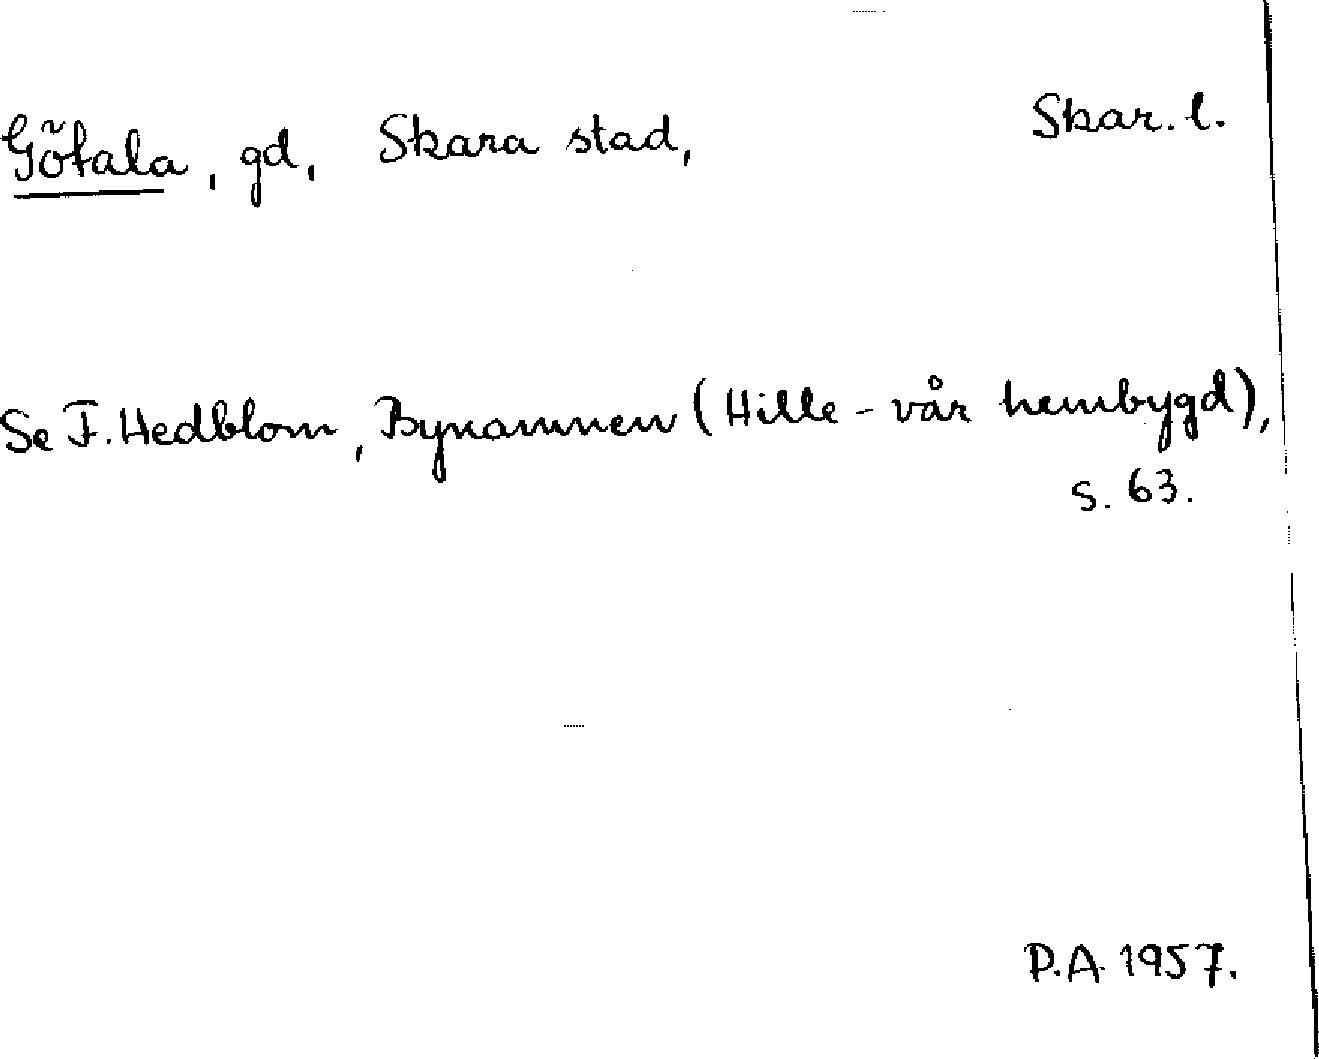 Götala, gd, Skara stad, Skar. l.
Se F. Hedblom, Bynamnen (Hille - vår hembygd),
s. 63.
P.A. 1957.